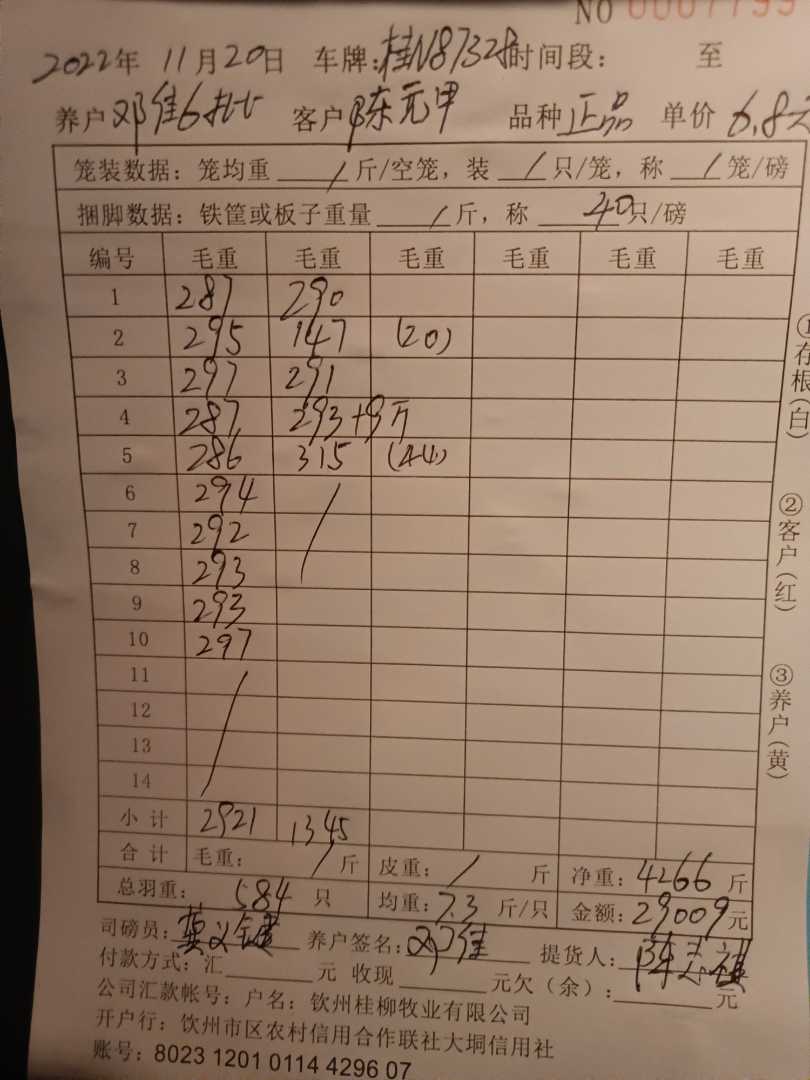 NO 0007799
2022年 11月20日 车牌:桂N87328 时间段: 至
养户 邓佳6批 客户 陈元甲 品种 正品 单价 6.8元
笼装数据: 笼均重 / 斤/空笼, 装 / 只/笼, 称 / 笼/磅
捆脚数据: 铁筐或板子重量 / 斤, 称 40 只/磅
编号 毛重 毛重 毛重 毛重 毛重 毛重
1 287 290
2 295 147 (20)
3 297 291
4 287 293+9斤
5 286 315 (44)
6 294 /
7 292
8 293
9 293
10 297
11 /
12
13
14
小计 2921 1345
合计 毛重: / 斤 皮重: / 斤 净重: 4266 斤
总羽重: 584 只 均重: 7.3 斤/只 金额: 29009 元
司磅员: 养户签名: 邓佳 提货人:
付款方式: 汇 元 收现 元欠(余): 元
公司汇款帐号: 户名: 钦州桂柳牧业有限公司
开户行: 钦州市区农村信用合作联社大垌信用社
账号: 8023 1201 0114 4296 07
①存根(白)
②客户(红)
③养户(黄)